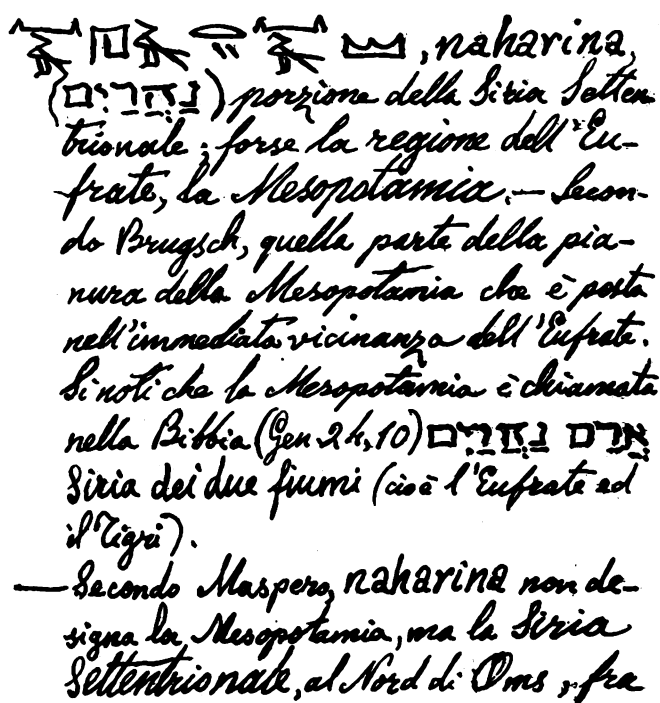 , naharina,
(נַהֲרַיִם) porzione della Siria Setten
trionale; forse la regione dell'Eu-
frate, la Mesopotamia. — Secon-
do Brugsch, quella parte della pia-
nura della Mesopotamia che è posta
nell'immediata vicinanza dell'Eufrate.
Si noti che la Mesopotamia è chiamata
nella Bibbia (Gen 24,10) אֲרַם נַהֲרַיִם
Siria dei due fiumi (cioè l'Eufrate ed
il Tigri).
— Secondo Maspero, naharina non de-
signa la Mesopotamia, ma la Siria
Settentrionale, al Nord di Oms, fra